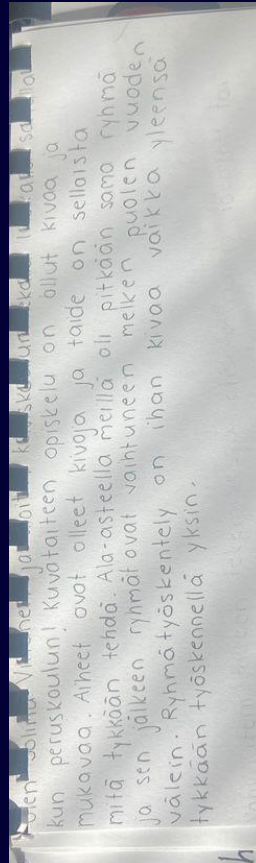 olen
kun peruskoulun! Kuvataiteen opiskelu on ollut kivaa ja
mukavaa. Aiheet ovat olleet kivoja ja taide on sellaista
mitä tykkään tehdä. Ala-asteella meillä oli pitkään sama ryhmä
ja sen jälkeen ryhmät ovat vaihtuneen melken puolen vuoden
välein. Ryhmätyöskentely on ihan kivaa vaikka yleensä
tykkään työskennellä yksin.